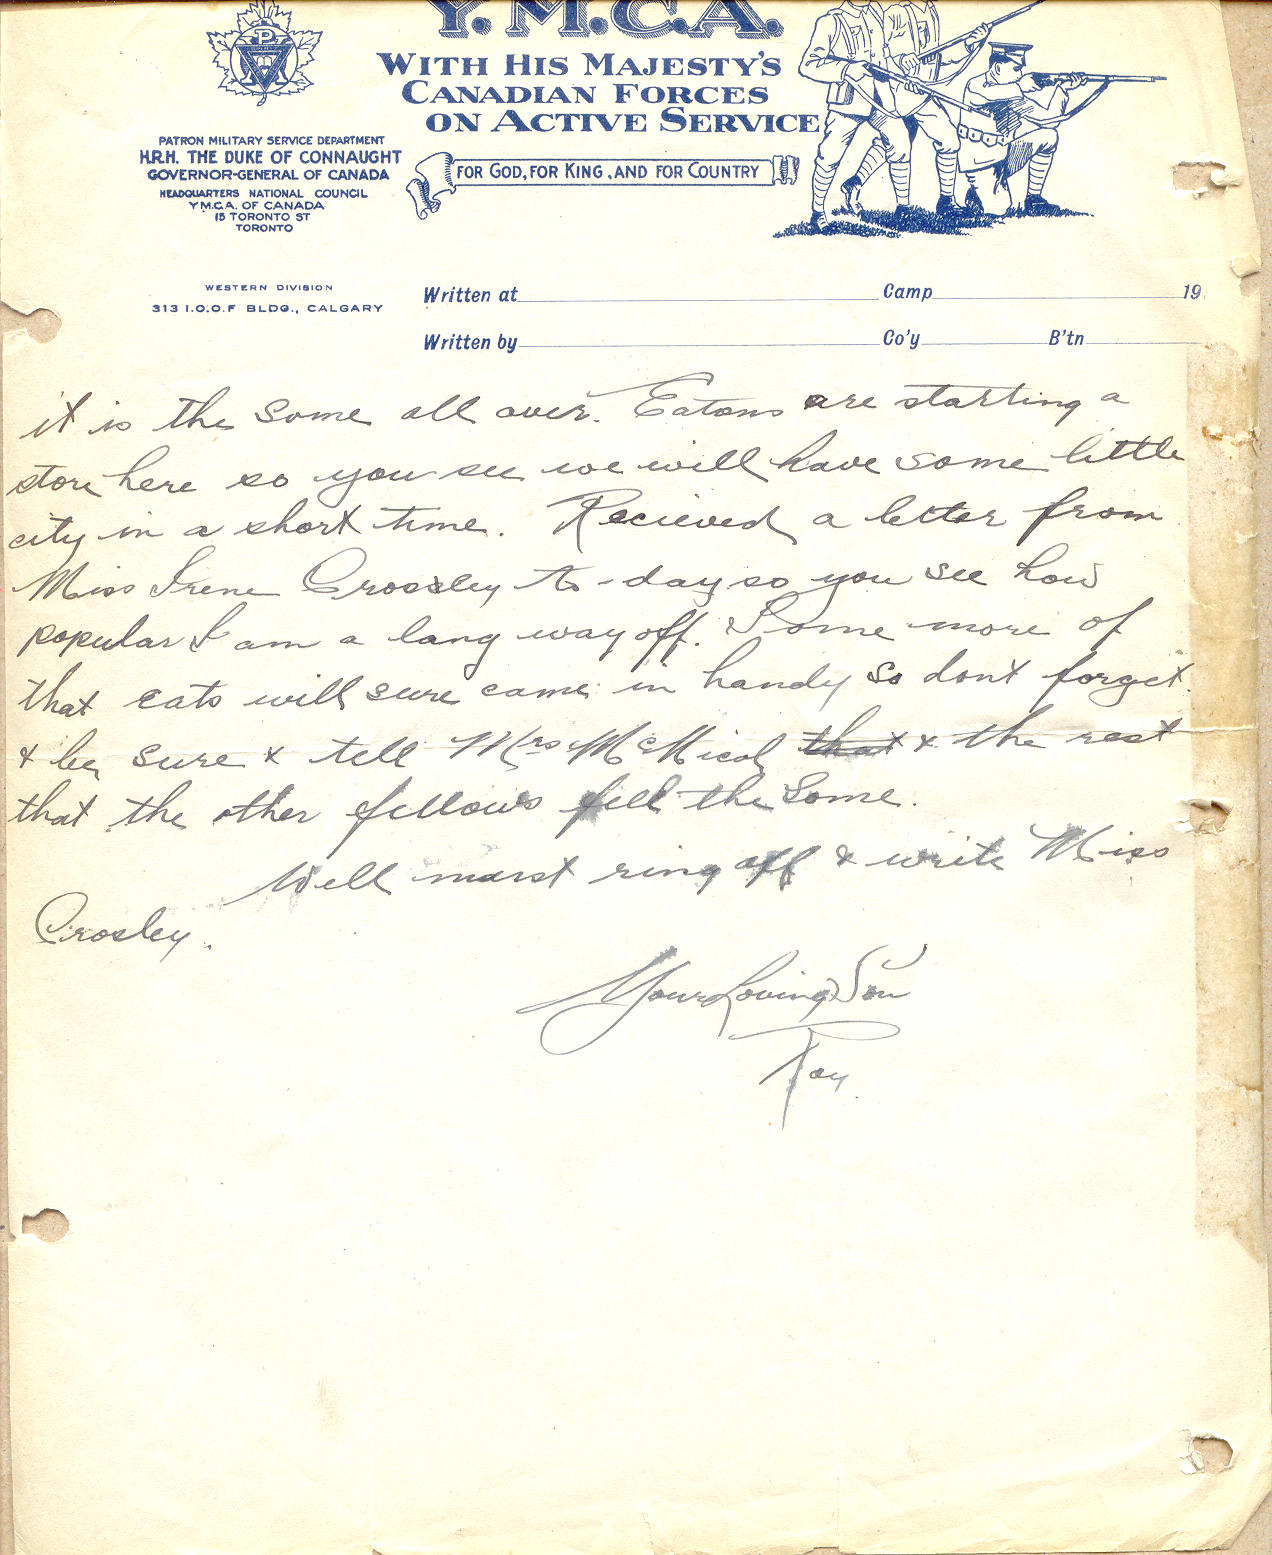 Y.M.C.A.
WITH HIS MAJESTY'S
CANADIAN FORCES
ON ACTIVE SERVICE
FOR GOD, FOR KING, AND FOR COUNTRY
P
PATRON MILITARY SERVICE DEPARTMENT
H.R.H. THE DUKE OF CONNAUGHT
GOVERNOR-GENERAL OF CANADA
HEADQUARTERS NATIONAL COUNCIL
Y.M.C.A. OF CANADA
15 TORONTO ST
TORONTO
WESTERN DIVISION
313 I.O.O.F BLDG., CALGARY
Written at Camp 19
Written by Co'y B'tn
it is the same all over. Eatons are starting a
store here so you see we will have some little
city in a short time. Recieved a letter from
Miss Irene Crossley to-day so you see how
popular I am a long way off. Some more of
that eats will sure come in handy so dont forget
& be sure & tell Mrs McNicol that & the rest
that the other fellows fell the same.
Well must ring off & write Miss
Crosley.
Your Loving Son
Roy.